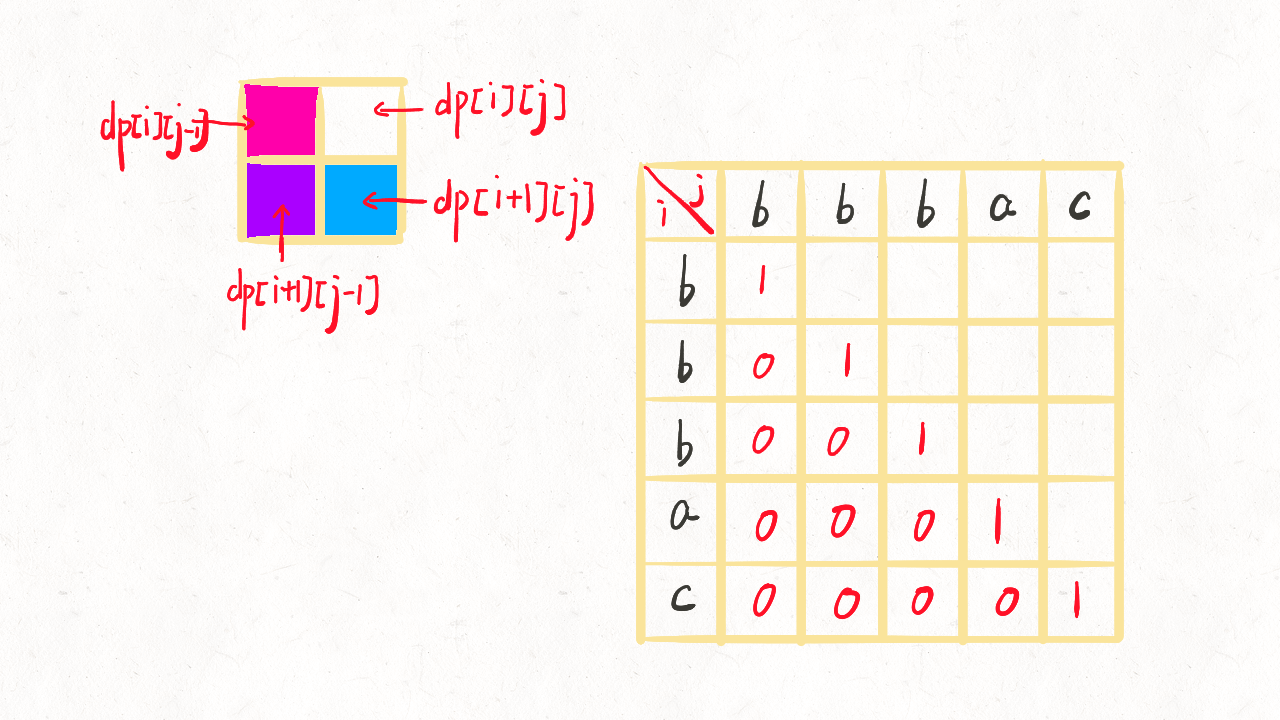 dp[i][j]
dp[i][j-1]
dp[i+1][j]
dp[i+1][j-1]
i j b b b a c
b 1
b 0 1
b 0 0 1
a 0 0 0 1
c 0 0 0 0 1